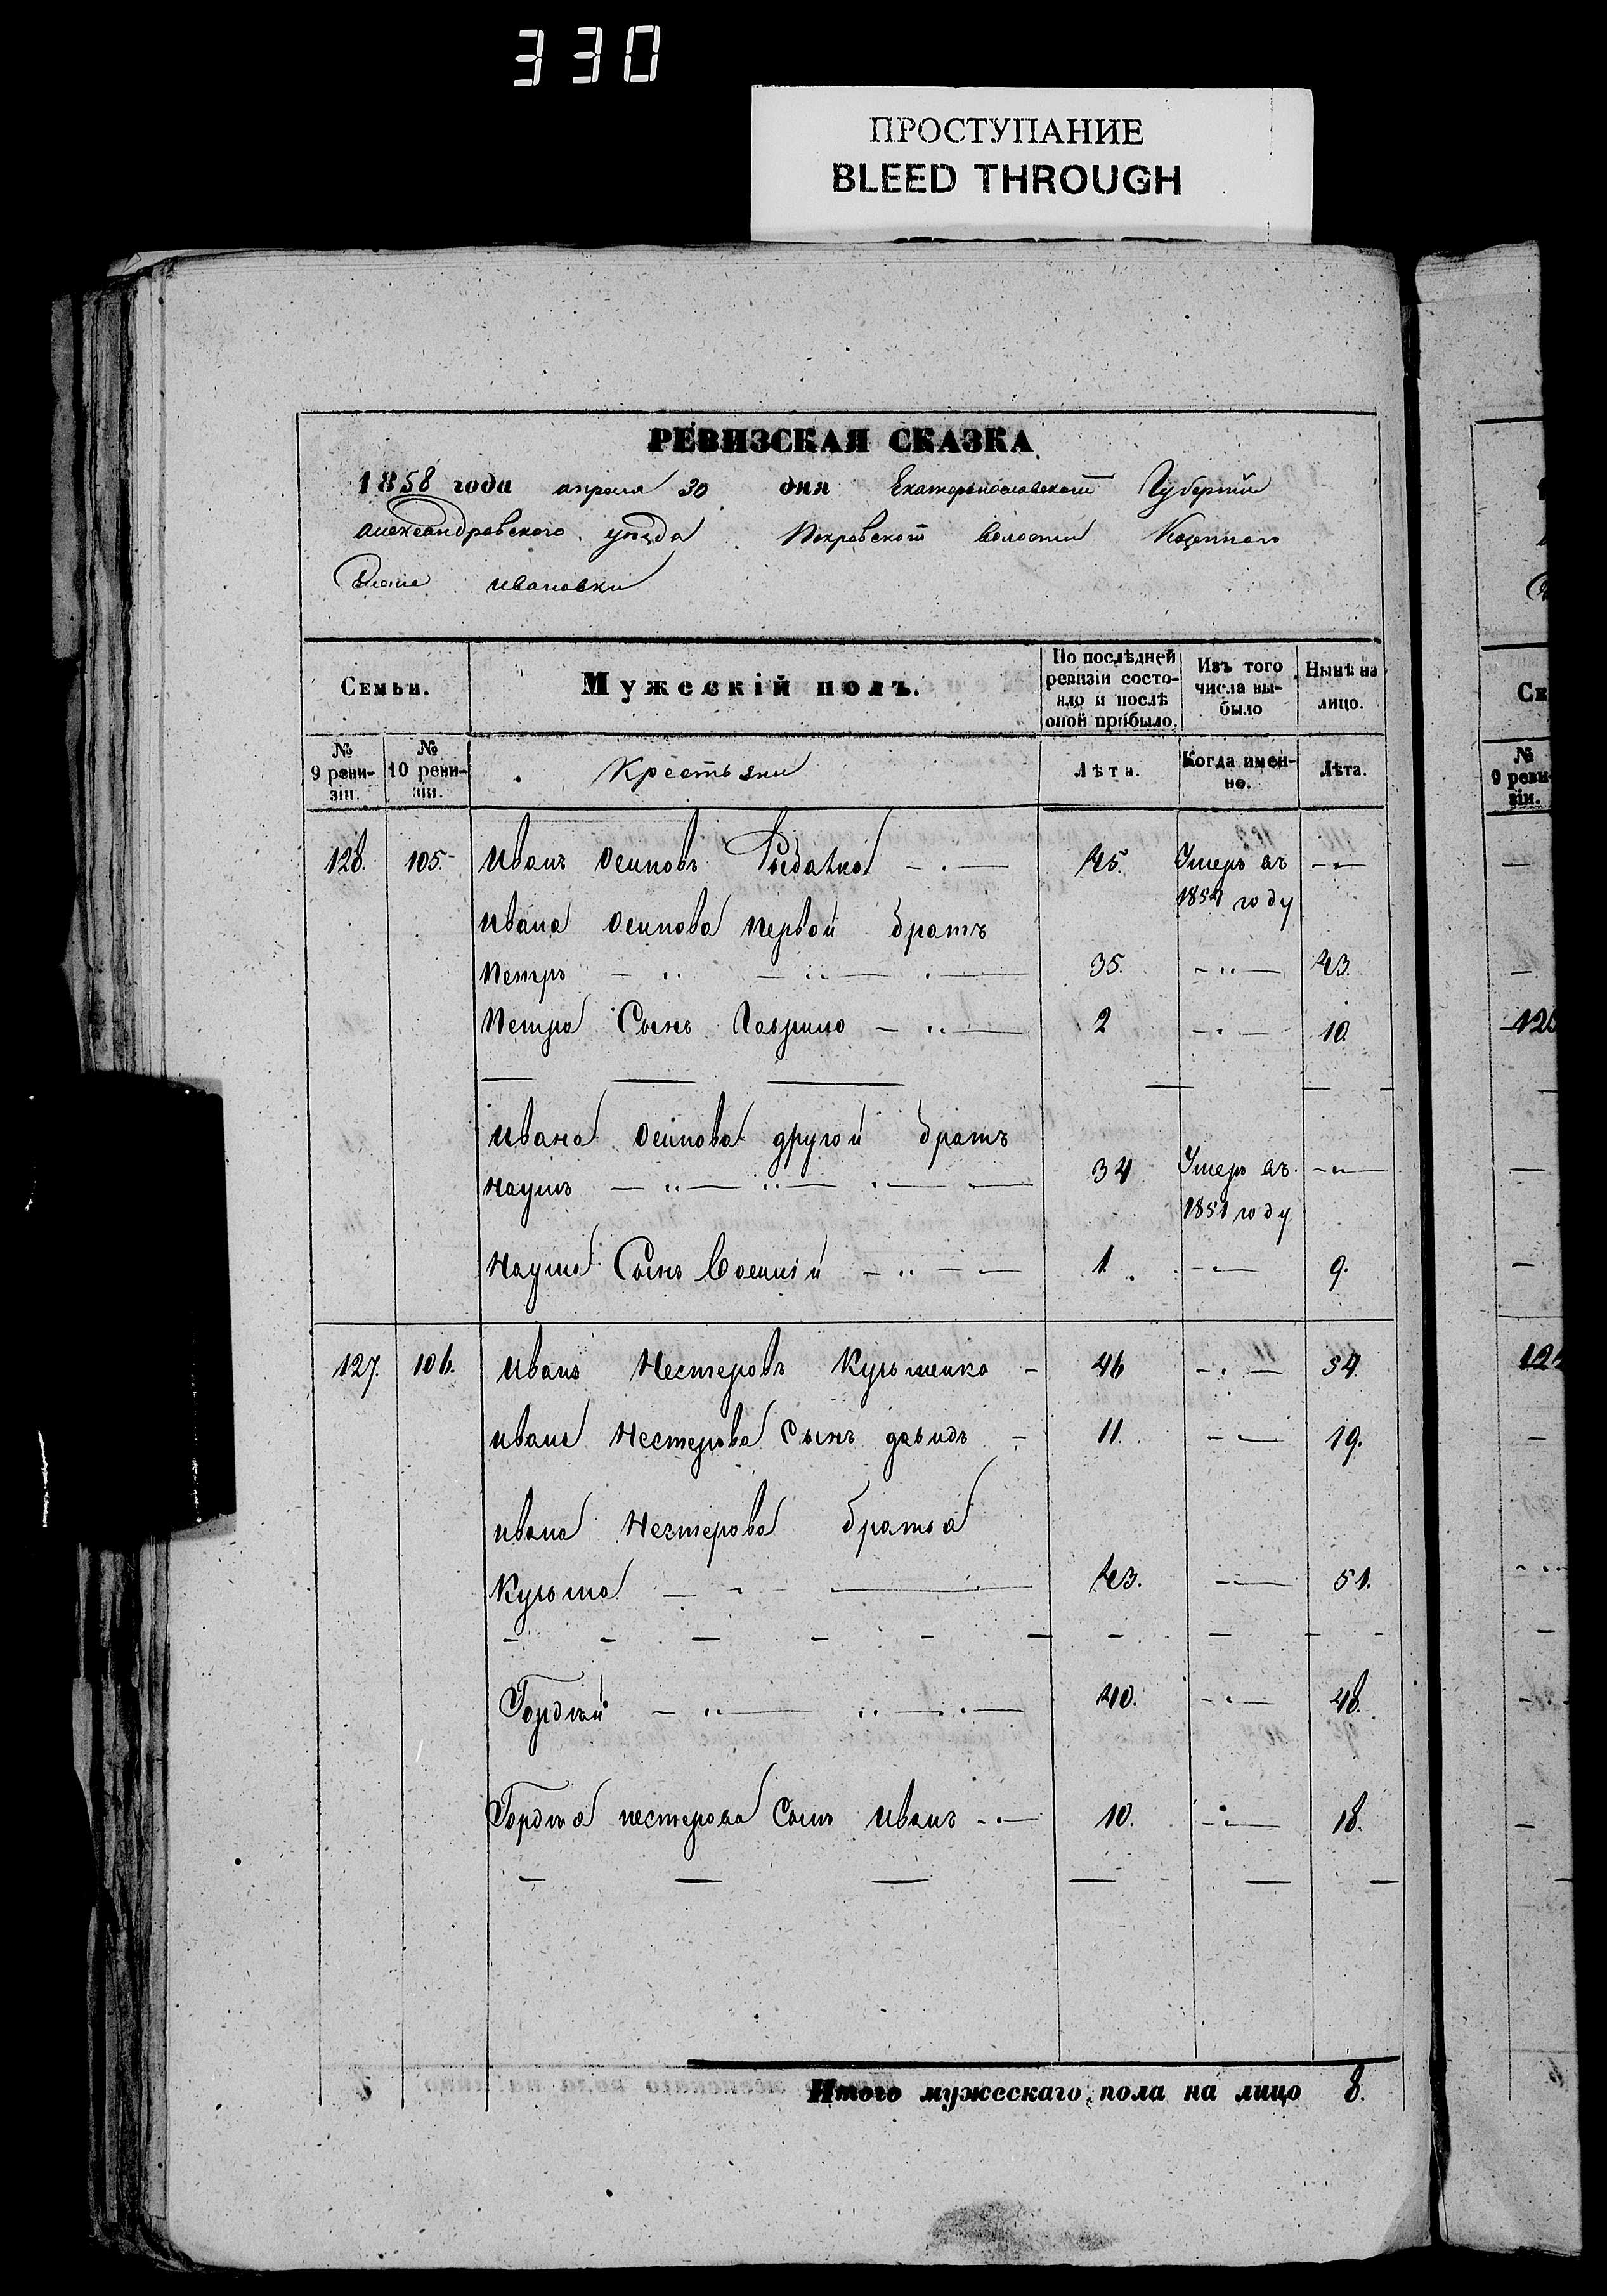 330
ПРОСТУПАНИЕ
BLEED THROUGH
РЕВИЗСКАЯ СКАЗКА
1858 года апреля 30 дня Екатеринославской Губернии
Александровского уезда Покровской волости Казенного
Села Ивановки
Семьи.
Мужескій полъ.
По послѣдней ревизіи состояло и послѣ оной прибыло.
Изъ того числа выбыло
Нынѣ на лицо.
№ 9 ревизіи.
№ 10 ревизіи.
Крестьяни
Лѣта.
Когда именно.
Лѣта.
128. 105. Иванъ Осиповъ 45. Умеръ въ
1854 году
Ивана Осипова первой братъ
Петръ 35. 43.
Петра Сынъ Гаврило 2 10.
Ивана Осипова другой братъ
Наумъ 34 Умеръ въ
1851 году
Наума Сынъ 1. 9.
127. 106. Иванъ Нестеровъ Кузьменко 46 54.
Ивана Нестерова Сынъ давидъ 11. 19.
Ивана Нестерова братья
Кузьма 43. 51.
Гордѣй 40. 48.
Гордѣя нестерова Сынъ Иванъ 10. 18.
Итого мужескаго пола на лицо 8.
№
9 реви-
зіи.